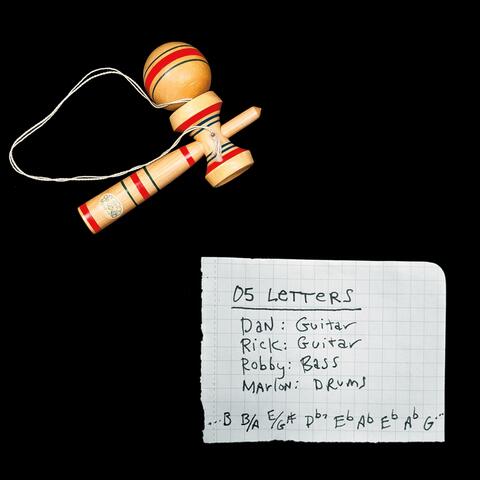 05 LETTERS
DAN: Guitar
Rick: Guitar
Robby: Bass
Marlon: DRUMS
...B B/A E/G# Db7 Eb Ab Eb Ab G...